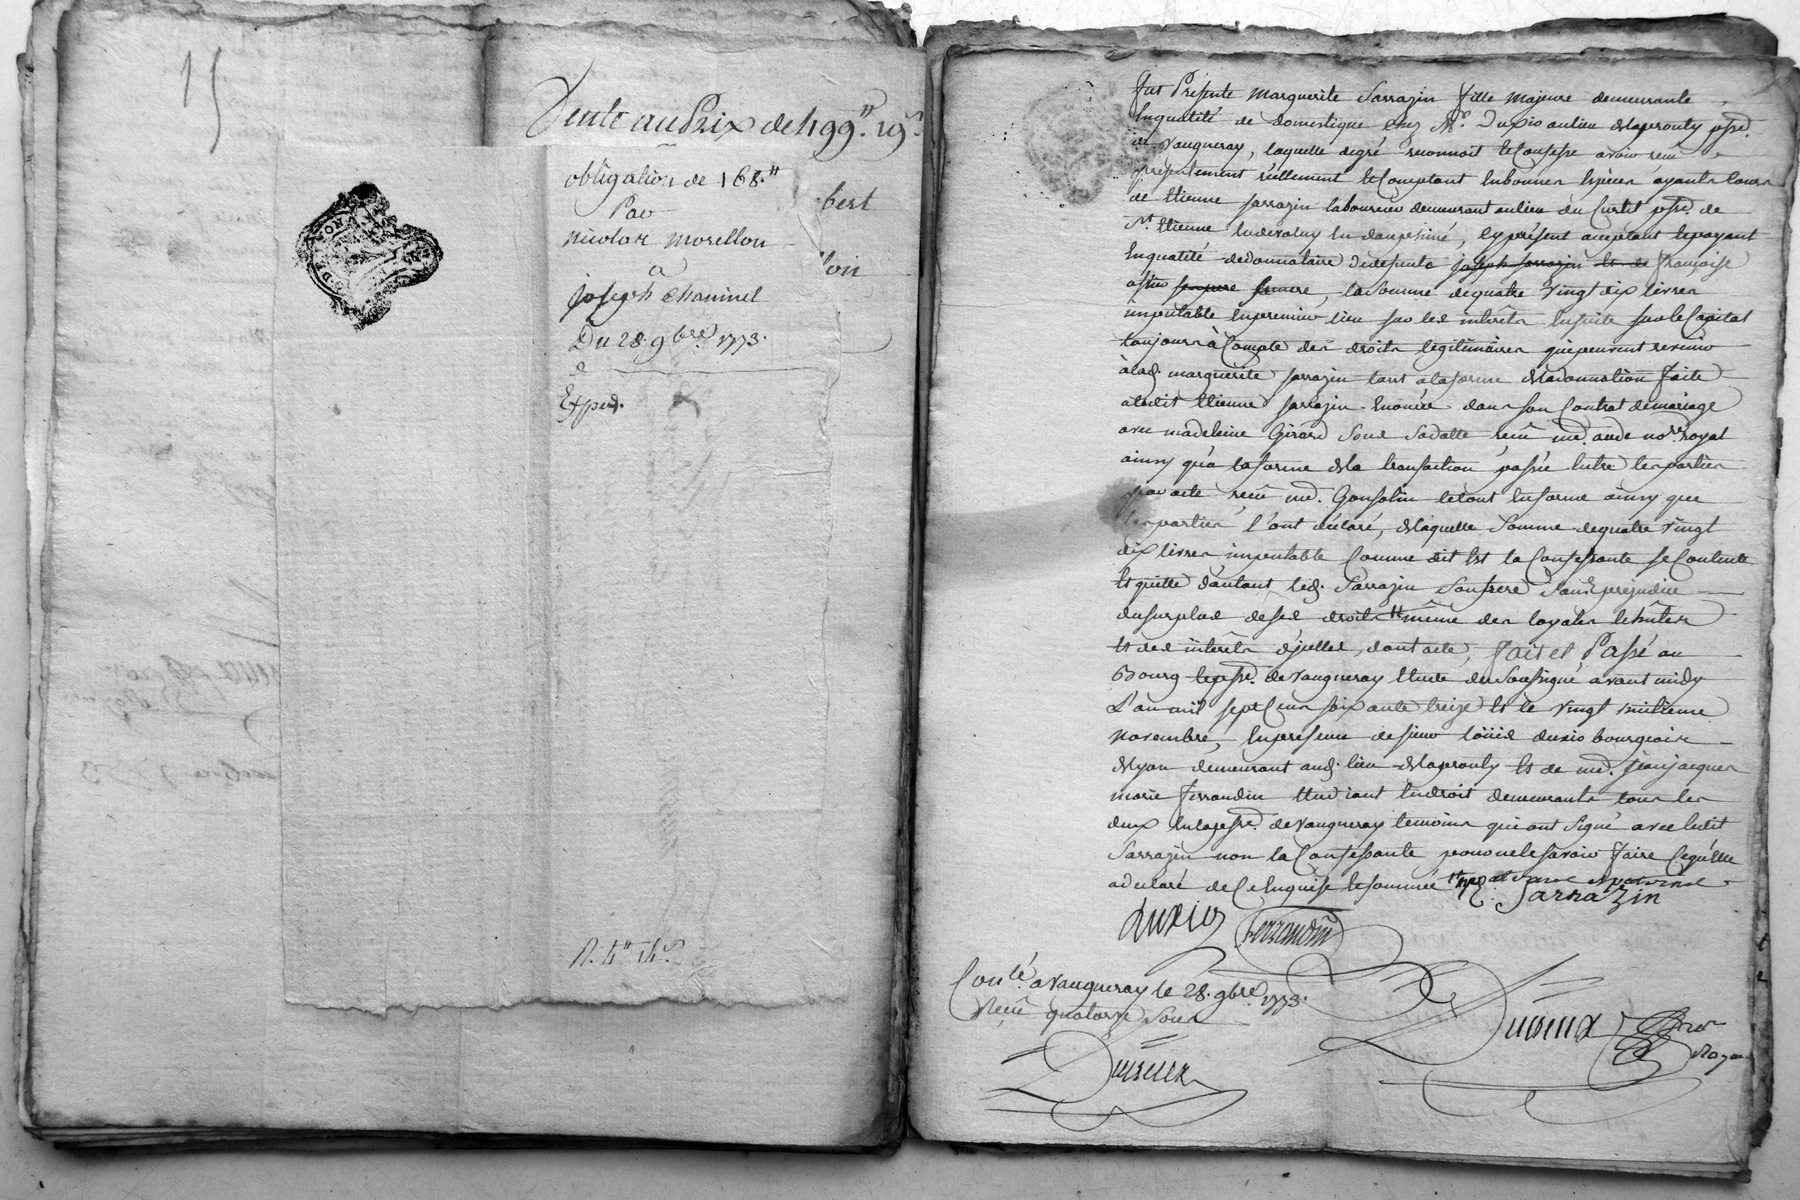 15
Vente au Prix de 499.tt 19.s
obligation de 168.tt
Par
nicolas morellon
a
joseph Chaninel
Du 28. 9bre 1773.
Exped.
bert
llon
R. 4.tt 14.s
fut Présente marguerite Sarrazin fille majeure demeurante
en qualité de domestique chez Mr. Duxio au lieu de laprouty psse.
de vaugneray, laquelle de gré reconnoit et Confesse avoir reçu
présentement réellement et Comptant en bonnes espèces ayants Cours
de Etienne sarrazin laboureur demeurant au lieu du Curtil psse. de
St. Etienne en dauphiné, cy présent acceptant et payant
en qualité de donnataire de defunts joseph sarrazin et de françoise
, la Somme de quatre vingt dix livres
imputable en premier lieu sur les interets ensuite sur le Capital
toujours à Compte des droits legitimaires que peuvent revenir
à lad. marguerite sarrazin tant a la forme de la donnation faite
audit Etienne sarrazin enoncée dans son Contrat de mariage
avec madeleine Girard sous sa datte reçu me. aude nore. royal
ainsy qu'a la forme de la transaction passée entre les parties
par acte reçu me. Gonsolin le tout en forme ainsy que
les parties l'ont déclaré, de laquelle Somme de quatre vingt
dix livres imputable Comme dit est la Confessante se Contente
et quitte d'autant led. Sarrazin son frere sans préjudice
du surplus de ses droits même des loyales echutes
et des interets d'iceux, dont acte, fait et Passé au
Bourg et psse. de vaugneray Etude du Soussigné avant midy
L'an mil sept Cent soixante treize et le vingt huitieme
novembre, en presence de sieur loüis duxio bourgeois
de lyon demeurant aud. lieu de laprouty et de me. jean jacques
marie ferrandin Etudiant en droit demeurants tous les
deux en la psse. de vaugneray temoins qui ont signé avec ledit
Sarrazin non la Confessante pour ne le savoir faire Ce qu'elle
a declaré de Ce enquise et sommée
Sarrazin
duxio ferrandin
Conlé. a vaugneray le 28. 9bre 1773.
Reçu quatorze sous